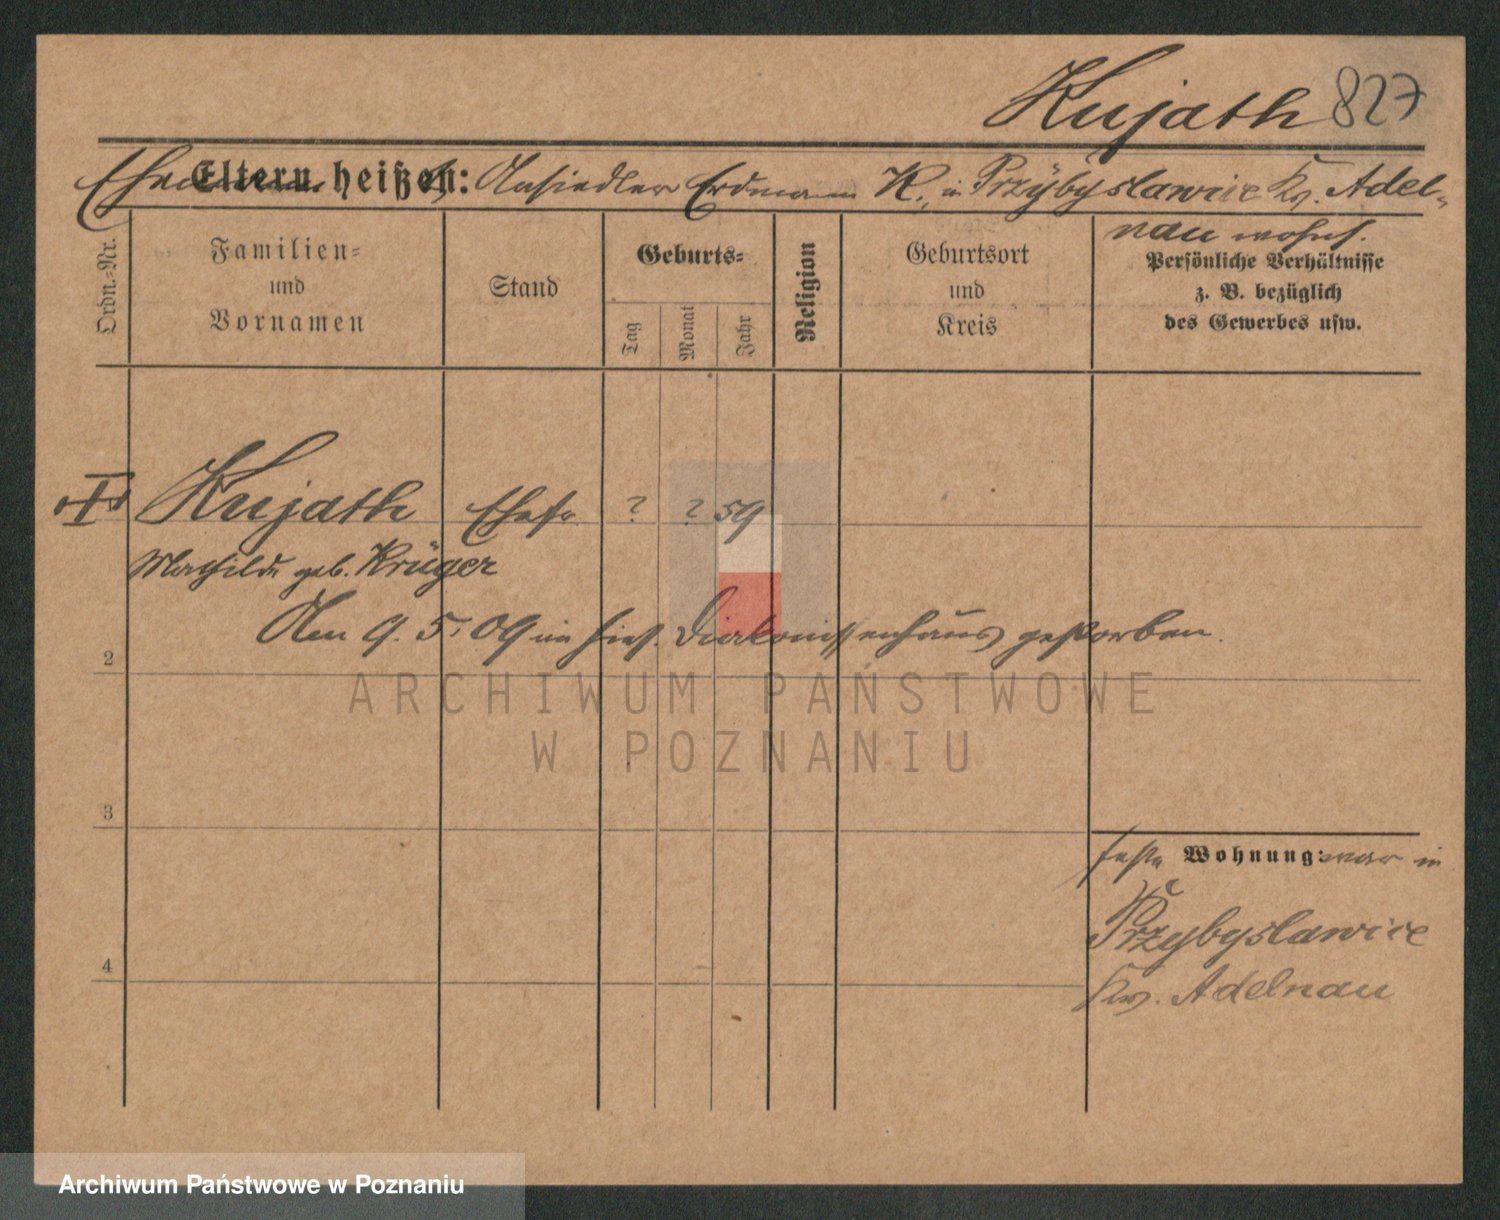 Kujath 827
Ehemann Eltern heißen: Ansiedler Erdmann K., in Przybyslawice Kr. Adel-
nau wohnh.
Ordn.-Nr.
Familien-
und
Vornamen
Stand
Geburts-
Tag
Monat
Jahr
Religion
Geburtsort
und
Kreis
Persönliche Verhältnisse
z. B. bezüglich
des Gewerbes usw.
I Kujath Ehefr. ? ? 59
Mathilde geb. Krüger
Am 9. 5. 09 im hies. Diakonissenhaus gestorben.
2
ARCHIWUM PAŃSTWOWE
W POZNANIU
3
feste Wohnung: war in
Przybyslawice
Kr. Adelnau
4
Archiwum Państwowe w Poznaniu